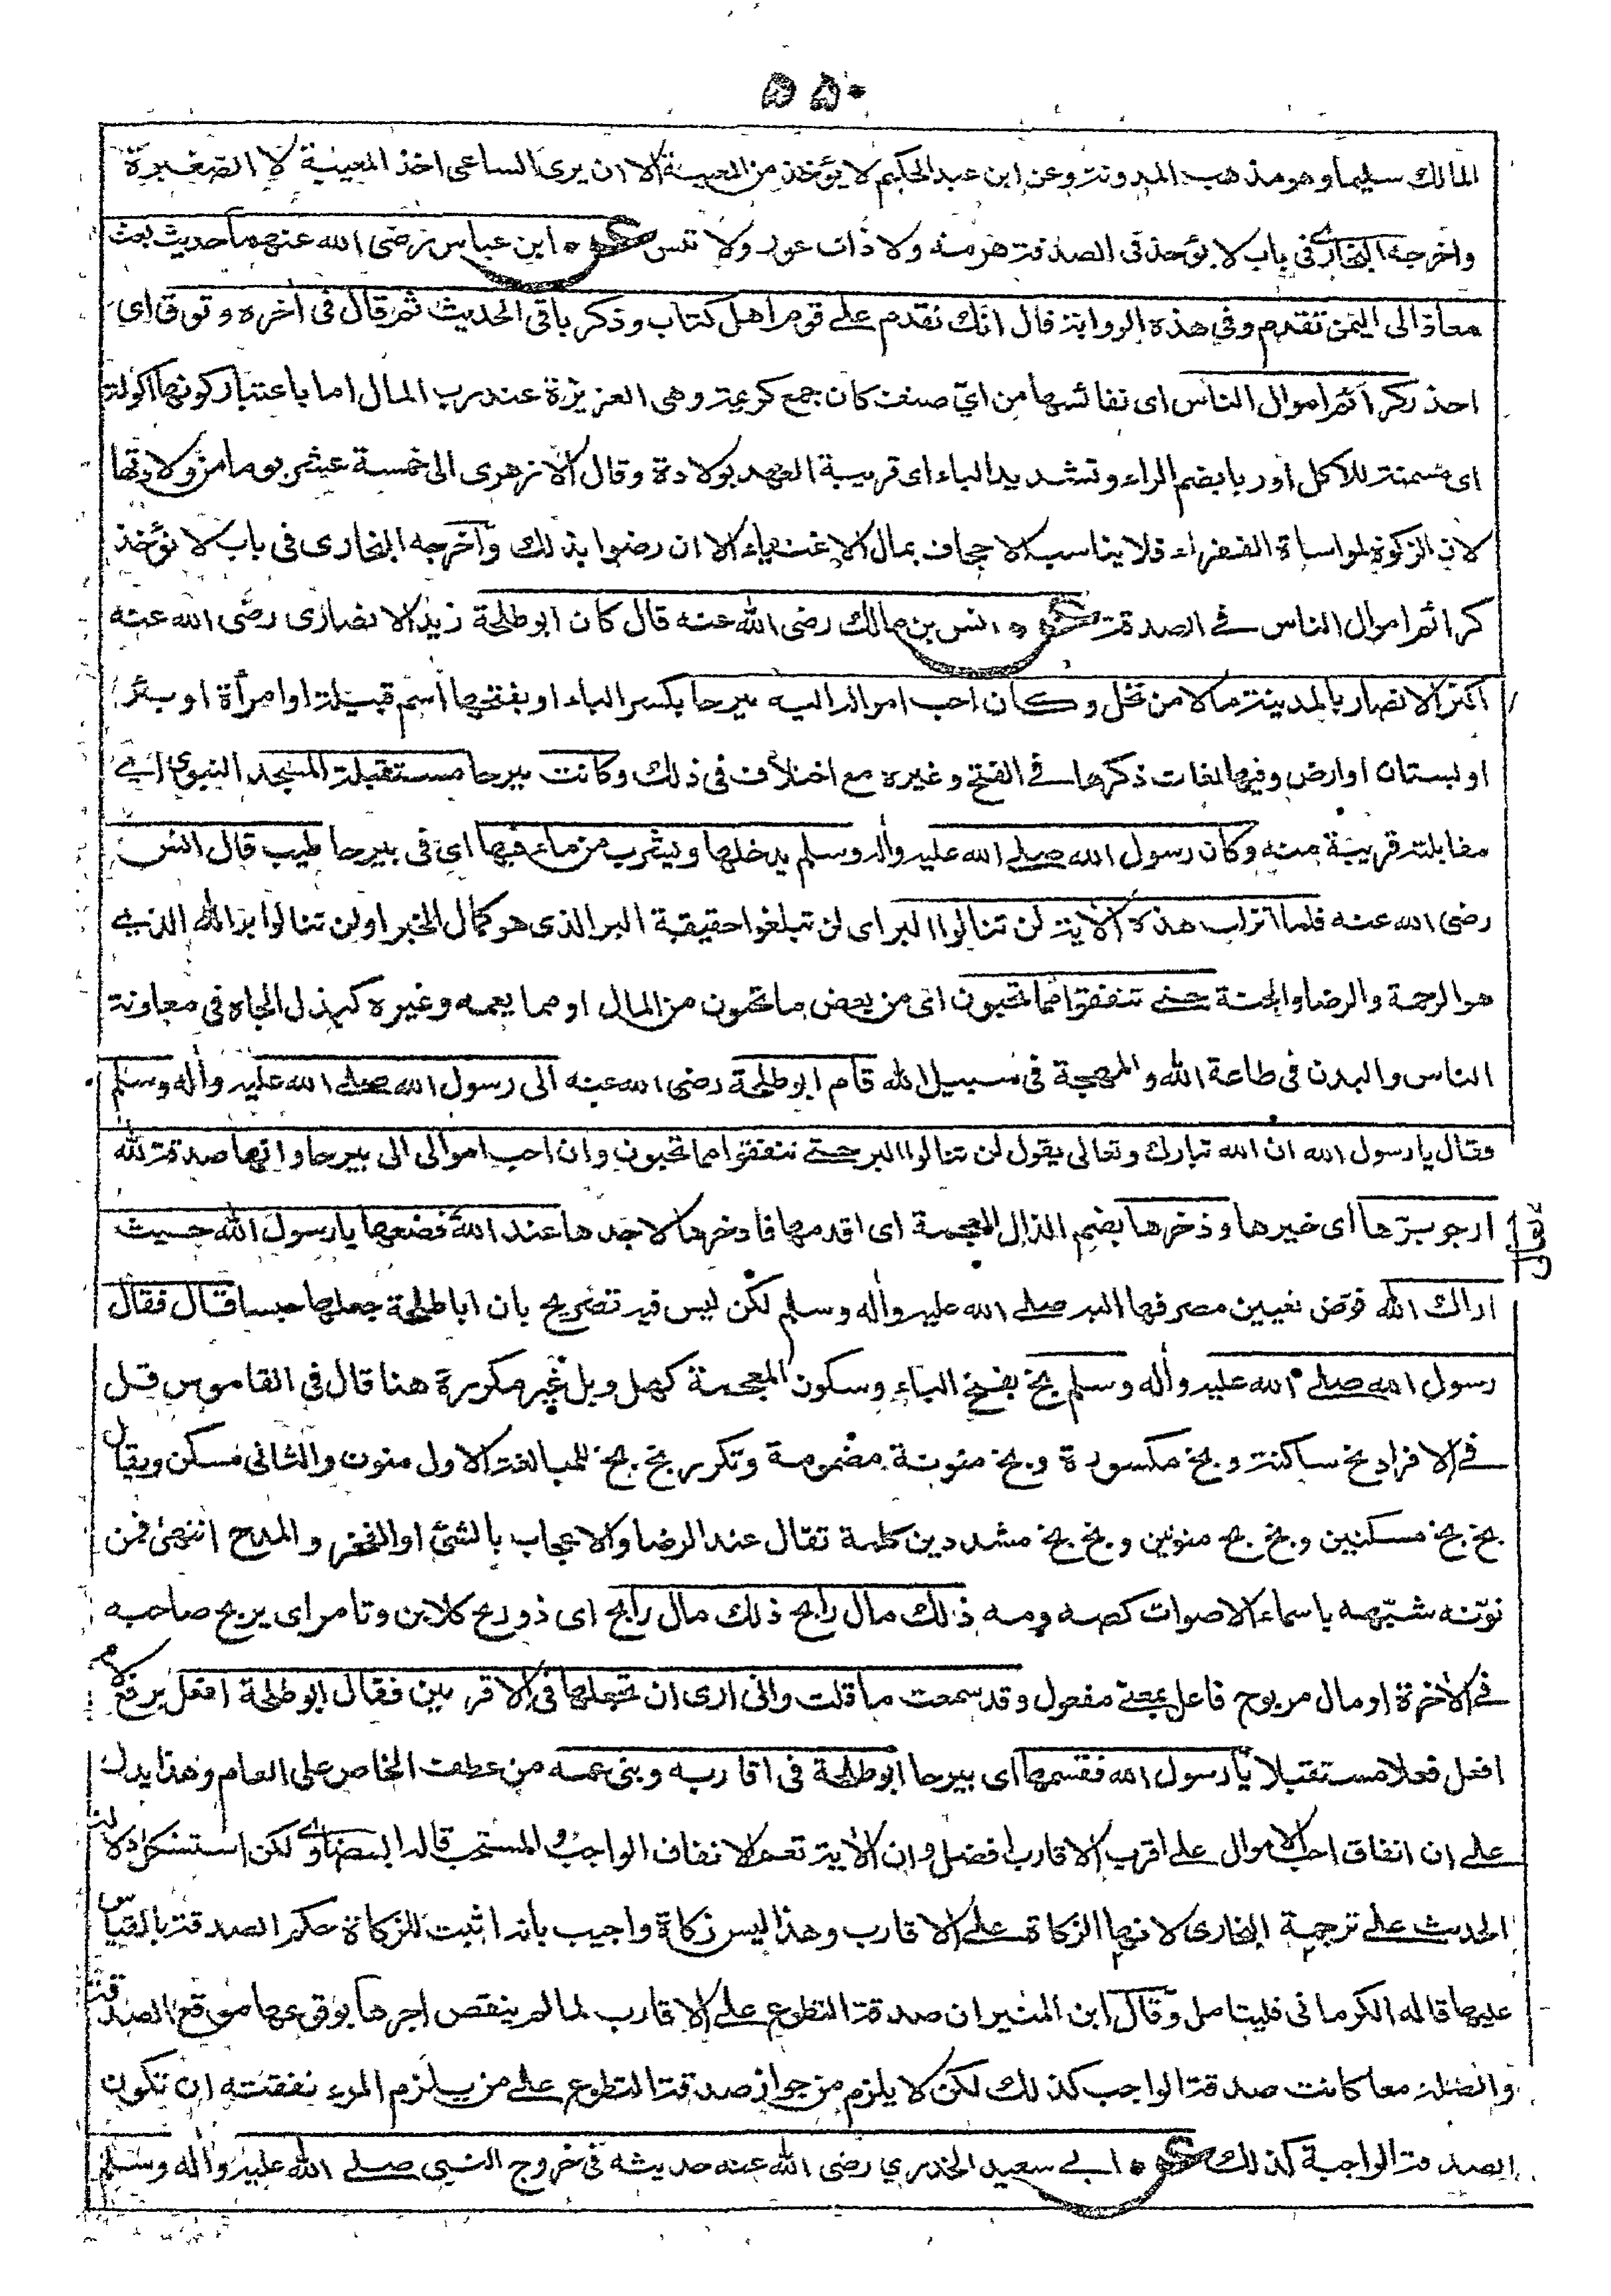 ٥٥٠
المالك سليما وهو مذهب المدونة وعن ابن عبد الحكيم لا يؤخذ من المعيبة الا ان يرى الساعى اخذ المعيبة لا الصغيرة
واخرجه البخارى فى باب لا يؤخذ فى الصدقة هرمة ولا ذات عوار ولا تيس عن ابن عباس رضى الله عنهما حديث بعث
معاذ الى اليمن تقدم وفى هذه الرواية قال انك تقدم على قوم اهل كتاب وذكر باقى الحديث ثم قال فى اخره وتوق اى
احذر كرائم اموال الناس اى نفائسها من اىّ صنف كان جمع كريمة وهى العزيزة عند رب المال اما باعتبار كونها اكولة
اى مسمنة للاكل او ربا بضم الراء وتشديد الباء اى قريبة العهد بولادة وقال الازهرى الى خمسة عشر يوما من ولادتها
لان الزكوة لمواساة الفقراء فلا يناسب الاجحاف بمال الاغنياء الا ان رضوا بذلك وأخرجه البخارى فى باب لا تؤخذ
كرائم اموال الناس فى الصدقة عن انس بن مالك رضى الله عنه قال كان ابو طلحة زيد الانصارى رضى الله عنه
اكثر الانصار بالمدينة مالا من نخل وكان احب امواله اليه بيرحا بكسر الباء او بفتحها اسم قبيلة او امرأة او بئر
او بستان او ارض وفيها لغات ذكرها فى الفتح وغيره مع اختلاف فى ذلك وكانت بيرحا مستقبلة المسجد النبوى اى
مقابلته قريبة منه وكان رسول الله صلى الله عليه وأله وسلم يدخلها ويشرب من ماء فيها اى فى بيرحا طيب قال انس
رضى الله عنه فلما انزلت هذه الأية لن تنالوا البر اى لن تبلغوا حقيقة البر الذى هو كمال الخير او لن تنالوا بر الله الذى
هو الرحمة والرضا والجنة حتى تنفقوا مما تحبون اى من بعض ما تحبون من المال او مما يعمه وغيره كبذل الجاه فى معاونة
الناس والبدن فى طاعة الله والمهجة فى سبيل الله قام ابو طلحة رضى الله عنه الى رسول الله صلى الله عليه وأله وسلم
فقال يا رسول الله ان الله تبارك وتعالى يقول لن تنالوا البر حتى تنفقوا مما تحبون وان احب اموالى الى بيرحا وانها صدقة لله
تعالى ارجو برّها اى خيرها وذخرها بضم الذال المعجمة اى اقدمها فادخرها لاجدها عند الله فضعها يا رسول الله حيث
اراك الله فوّض تعيين مصرفها اليه صلى الله عليه وأله وسلم لكن ليس فيه تصريح بان ابا طلحة جعلها حبسا قال فقال
رسول الله صلى الله عليه وأله وسلم بخ بفتح الباء وسكون المعجمة كهل وبل غير مكررة هنا قال فى القاموس قل
فى الافراد بخ ساكنة وبخ مكسورة وبخ منونة مضمومة وتكرر بخ بخ للمبالغة الاول منون والثانى مسكن ويقال
بخ بخ مسكنين وبخ بخ منونين وبخ بخ مشددين كلمة تقال عند الرضا والاعجاب بالشئ او الفخر والمدح انتهى فمن
نوّنه شبّهه باسماء الاصوات كصه ومه ذلك مال رابح ذلك مال رابح اى ذو ربح كلابن وتامر اى يربح صاحبه
فى الأخرة او مال مربوح فاعل بمعنى مفعول وقد سمعت ما قلت وانى ارى ان تجعلها فى الاقربين فقال ابو طلحة افعل برفع لام
افعل فعلا مستقبلا يا رسول الله فقسمها اى بيرحا ابو طلحة فى اقاربه وبنى عمه من عطف الخاص على العام وهذا يدل
على ان انفاق احب الاموال على اقرب الاقارب افضل وان الأية تعم الانفاق الواجب والمستحب قاله البيضاوى لكن استشكل دلالة
الحديث على ترجمة البخارى لانها الزكاة على الاقارب وهذا ليس زكاة واجيب بانه اثبت للزكاة حكم الصدقة بالقياس
عليها قاله الكرمانى فليتامل وقال ابن المنير ان صدقة التطوع على الاقارب لما لم ينقص اجرها بوقوعها موقع الصدقة
والصلة معا كانت صدقة الواجب كذلك لكن لا يلزم من جواز صدقة التطوع على من يلزم المرء نفقته ان تكون
الصدقة الواجبة كذلك عن ابى سعيد الخدري رضى الله عنه حديثه فى خروج النبى صلى الله عليه وأله وسلم